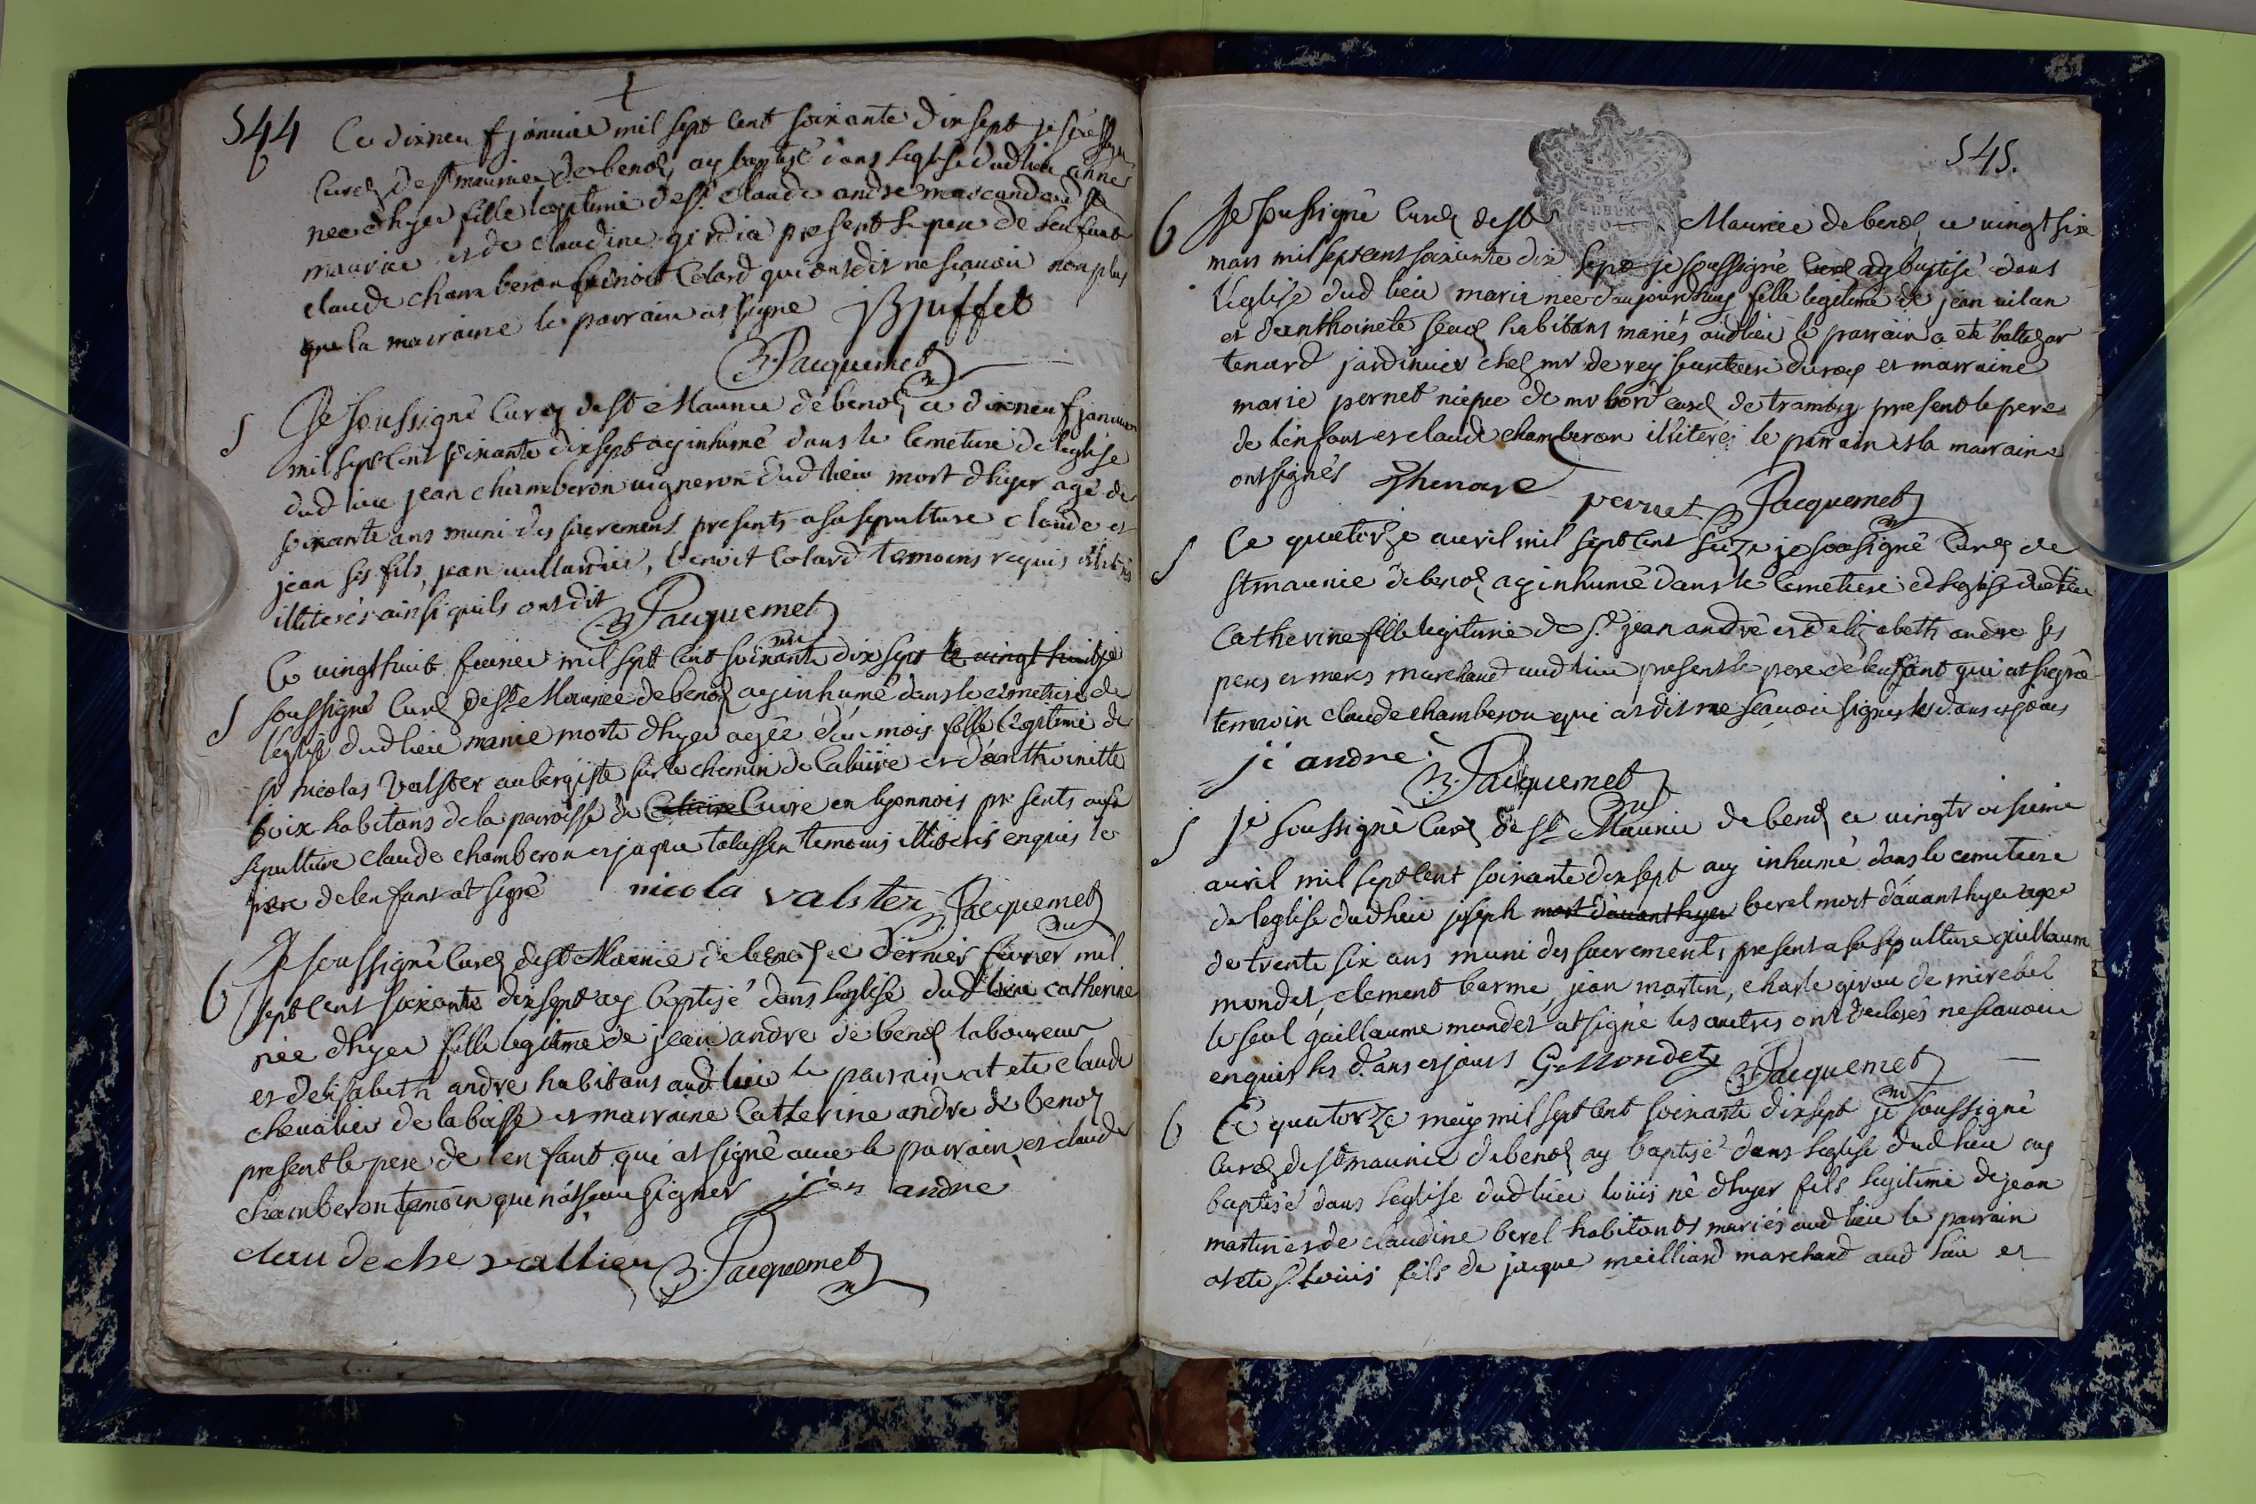 544
Ce dixneuf janvier mil sept cent soixante dix sept je
curé de st maurice de benoz ay baptisé dans leglise dud lieu anne
née dhyer fille legitime de sr claude andre marchand a st
maurice et de claudine girdia present le pere de lenfant
claude chamberon benoit colard qui ont dit ne sçavoir non plus
que la marraine le parrain at signe JBuffet
B. Jacquemet
S Je soussigné curé de st Maurice de benoz ce dixneuf janvier
mil sept cent soixante dix sept ay inhumé dans le cemetiere de leglise
dud lieu jean chamberon vigneron dud lieu mort dhyer agé de
soixante ans muni des sacremens presents a sa sepulture claude et
jean ses fils, jean vullardier, benoit colard temoins requis
illiterés ainsi quils ont dit B. Jacquemet
Ce vingt huit fevrier mil sept cent soixante dix sept le vingt huit je
S soussigné curé de st Maurice de benoz ay inhumé dans le cimetiere de
leglise dud lieu marie morte dhyer agée dun mois fille legitime de
sr nicolas valster aubergiste sur le chemin de caluire et danthoinette
boix habitans de la paroisse de caluire Cuire en lyonnois presents a sa
sepulture claude chamberon et jaque talussin temoins illiterés enquis le
pere de lenfant at signé nicola valster B. Jacquemet
6 Je soussigné curé de st Maurice de benoz ce dernier fevrier mil
sept cent soixante dix sept ay baptisé dans leglise dud lieu catherine
née dhyer fille legitime de jean andre de benoz laboureur
et delisabeth andre habitans aud lieu le parrain at ete claude
chevalier de la boisse et marraine Catherine andre de benoz
present le pere de lenfant qui at signé avec le parrain et claude
chamberon temoin qui n'at sceu signer jean andre
claude che vallier B. Jacquemet
545.
6 Je soussigné curé de st Maurice de benoz ce vingt six
mars mil sept cent soixante dix sept je soussigné curé ay baptisé dans
l'eglise dud lieu marie née daujourdhuy fille legitime de jean vilan
et d'anthoinete habitans mariés aud lieu le parrain a eté baltezar
tenard jardinier chez mr de rey secretaire du roy et marraine
marie pernet niepce de mr bord curé de tramby present le pere
de lenfant et claude chamberon illiterés le parrain et la marraine
ont signés Thenard pernet B. Jacquemet
S Ce quatorze avril mil sept cent seize je soussigné curé de
st maurice de benoz ay inhumé dans le cemetiere de leglise dud lieu
Catherine fille legitime de sr jean andré et delizabeth andre ses
peres et meres marchand aud lieu present le pere de lenfant qui at signé
temoin claude chamberon qui at dit ne sçavoir signer les d. ans et jours
j. andre B. Jacquemet
S Je soussigné curé de st Maurice de benoz ce vingtroisieme
avril mil sept cent soixante dix sept ay inhumé dans le cemetiere
de leglise dud lieu joseph mort d'avanthyer berel mort d'avanthyer agé
de trente six ans muni des sacrements, present a sa sepulture guillaume
mondet, clement barme, jean martin, charle girou de mirebel
le seul guillaume mondet at signé les autres ont declarés ne sçavoir
enquis les d. ans et jours G. Mondet B. Jacquemet
6 Ce quatorze may mil sept cent soixante dix sept je soussigné
curé de st maurice de benoz ay baptisé dans leglise dud lieu ay
baptisé dans leglise dud lieu louis né dhyer fils legitime de jean
martin et de claudine berel habitants mariés aud lieu le parrain
at ete sr louis fils de jacque meilliard marchand aud lieu et